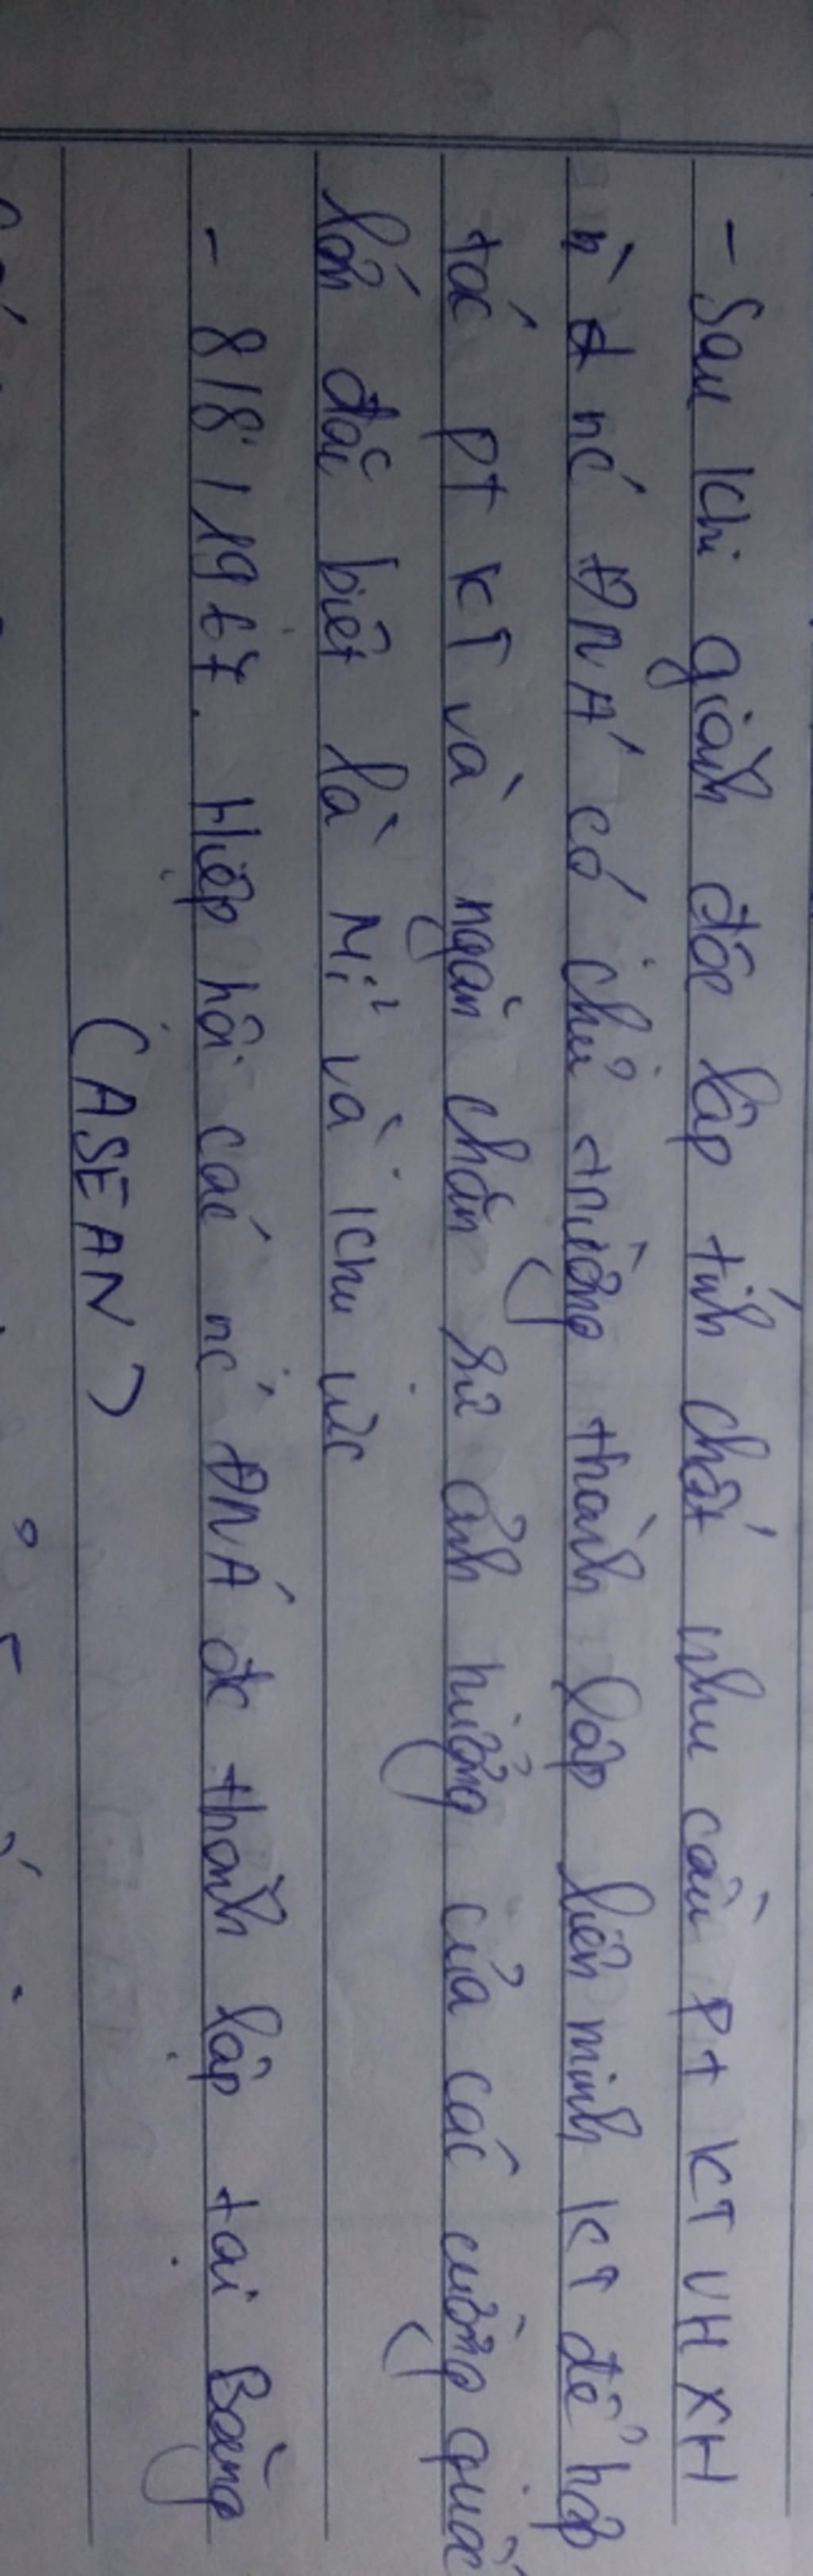 - Sau khi giành độc lập tính chất nhu cầu PT KT VH XH
nc ĐNÁ có chủ trường thành lập liên minh KT để hợp
tác PT KT và ngăn chặn sự ảnh hưởng của các cường quốc
lớn đặc biệt là Mĩ và khu vực
- 8/8/1967. Hiệp hội các nc ĐNÁ đc thành lập tại Băng
(ASEAN)